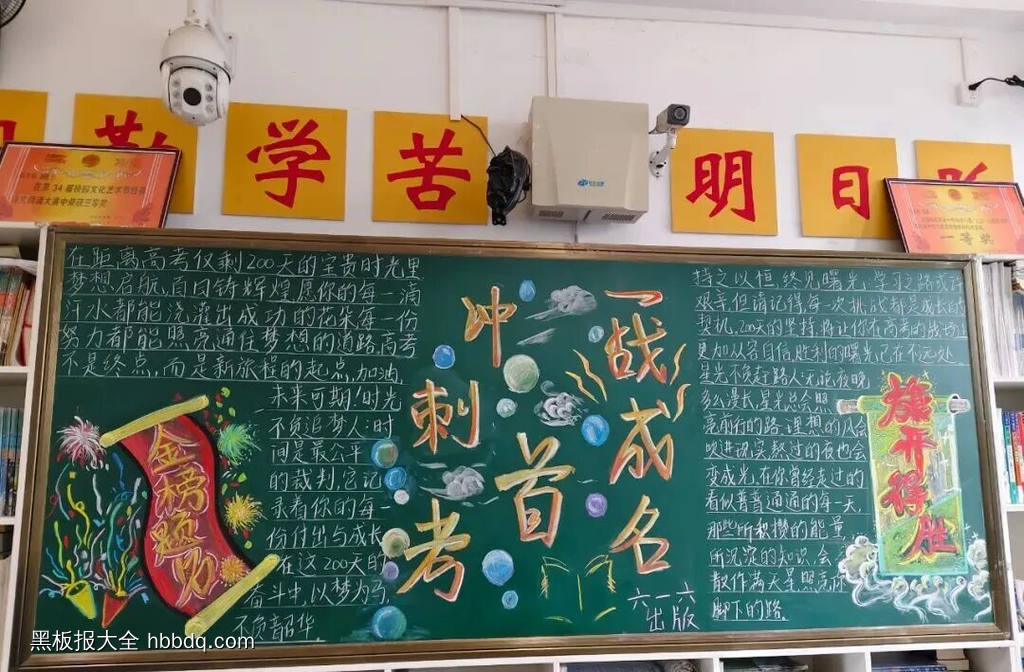 勤
学
苦
明
日
在第34届校园文化艺术节经典
诵大赛中荣获三等奖
一等奖
在距离高考仅剩200天的宝贵时光里
梦想启航,百日铸辉煌,愿你的每一滴
汗水都能浇灌出成功的花朵每一份
努力都能照亮通往梦想的道路高考
不是终点,而是新旅程的起点,加油,
未来可期!时光
不负追梦人:时
间是最公平
的裁判,它记
录着你的每一
份付出与成长
在这200天的
奋斗中,以梦为马,
不负韶华.
金榜题名
冲刺首考
一战成名
六一六
出版
持之以恒,终见曙光,学习之路或
艰辛但请记得,每一次挑战都是成长的
契机,200天的坚持,将让你在高考的战场上
更加从容自信,胜利的曙光,已在不远处
星光不负赶路人:无论夜晚
多么漫长,星光总会照
亮前行的路,理想的风会
吹进现实,熬过的夜也会
变成光,在你曾经走过的
看似普普通通的每一天,
那些所积攒的能量,
所沉淀的知识,会
散作满天星照亮你
脚下的路.
旗开得胜
黑板报大全 hbbdq.com